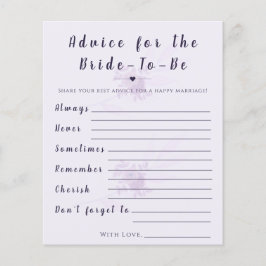 Advice for the
Bride-To-Be
Share your best advice for a happy marriage!
Always
Never
Sometimes
Remember
Cherish
Don't forget to
With Love,